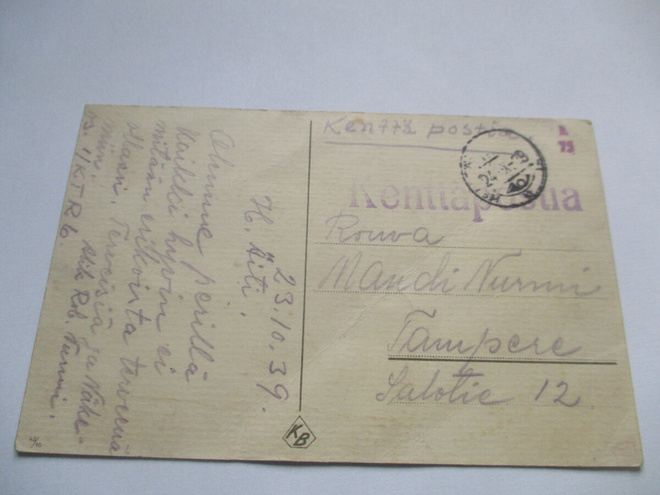 23.10.39.
H. Äiti.
Olemme perillä
kaikki hyvin ei
mitään erikoista terveenä
olassi. Terveisiä ja Näke-
miin! Nik Rob. Nurmi.
3. /KTR 6.
Kenttä postia.
Kenttäpostia
Rouva
Mandi Nurmi
Tampere
Salotie 12.
KB